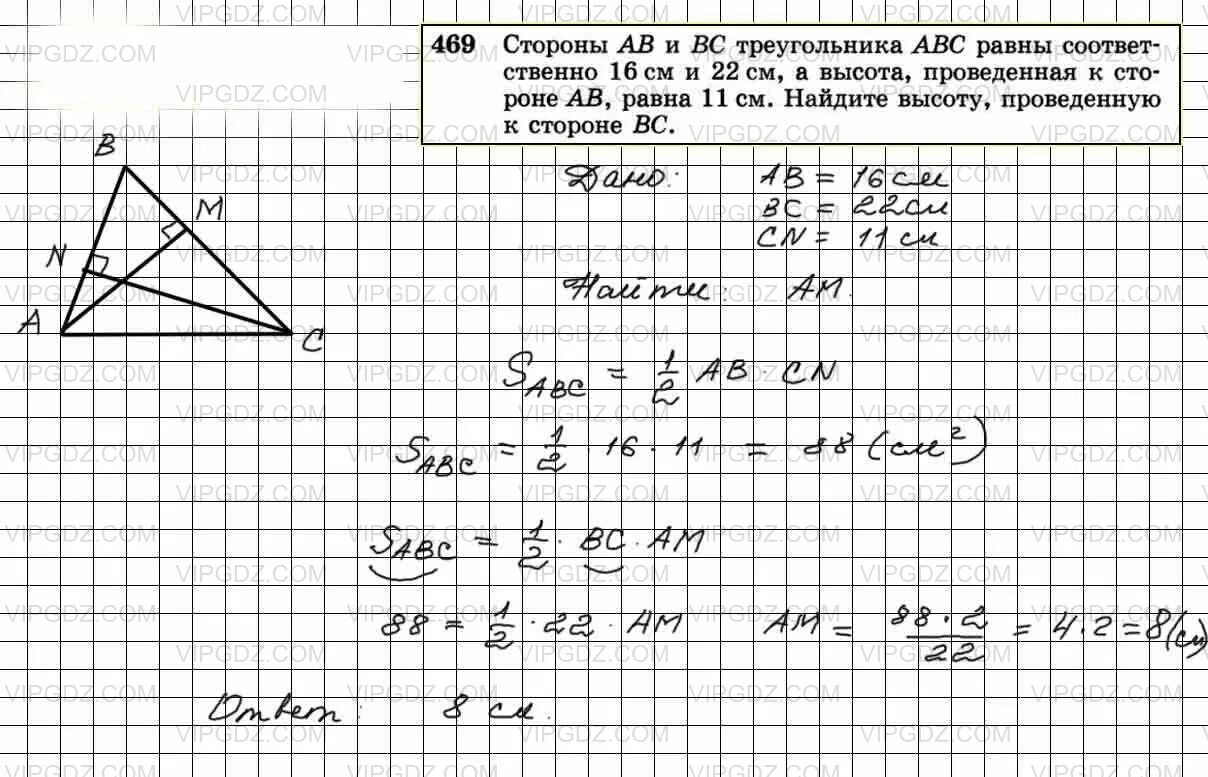 469 Стороны AB и BC треугольника ABC равны соответ-
ственно 16 см и 22 см, а высота, проведенная к сто-
роне AB, равна 11 см. Найдите высоту, проведенную
к стороне BC.
B
M
N
A
C
Дано: AB = 16 см
BC = 22 см
CN = 11 см
Найти: AM.
S_ABC = 1/2 AB · CN
S_ABC = 1/2 · 16 · 11 = 88 (см²)
S_ABC = 1/2 · BC · AM
88 = 1/2 · 22 · AM AM = 88 · 2 / 22 = 4 · 2 = 8 (см)
Ответ: 8 см.
VIPGDZ.COM